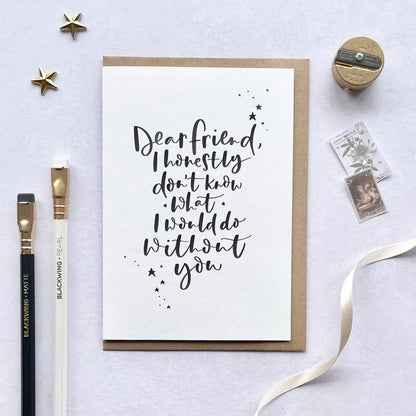 Dear friend,
I honestly
don't know
• what •
I would do
without
you
BLACKWING • MATTE
BLACKWING • PEARL